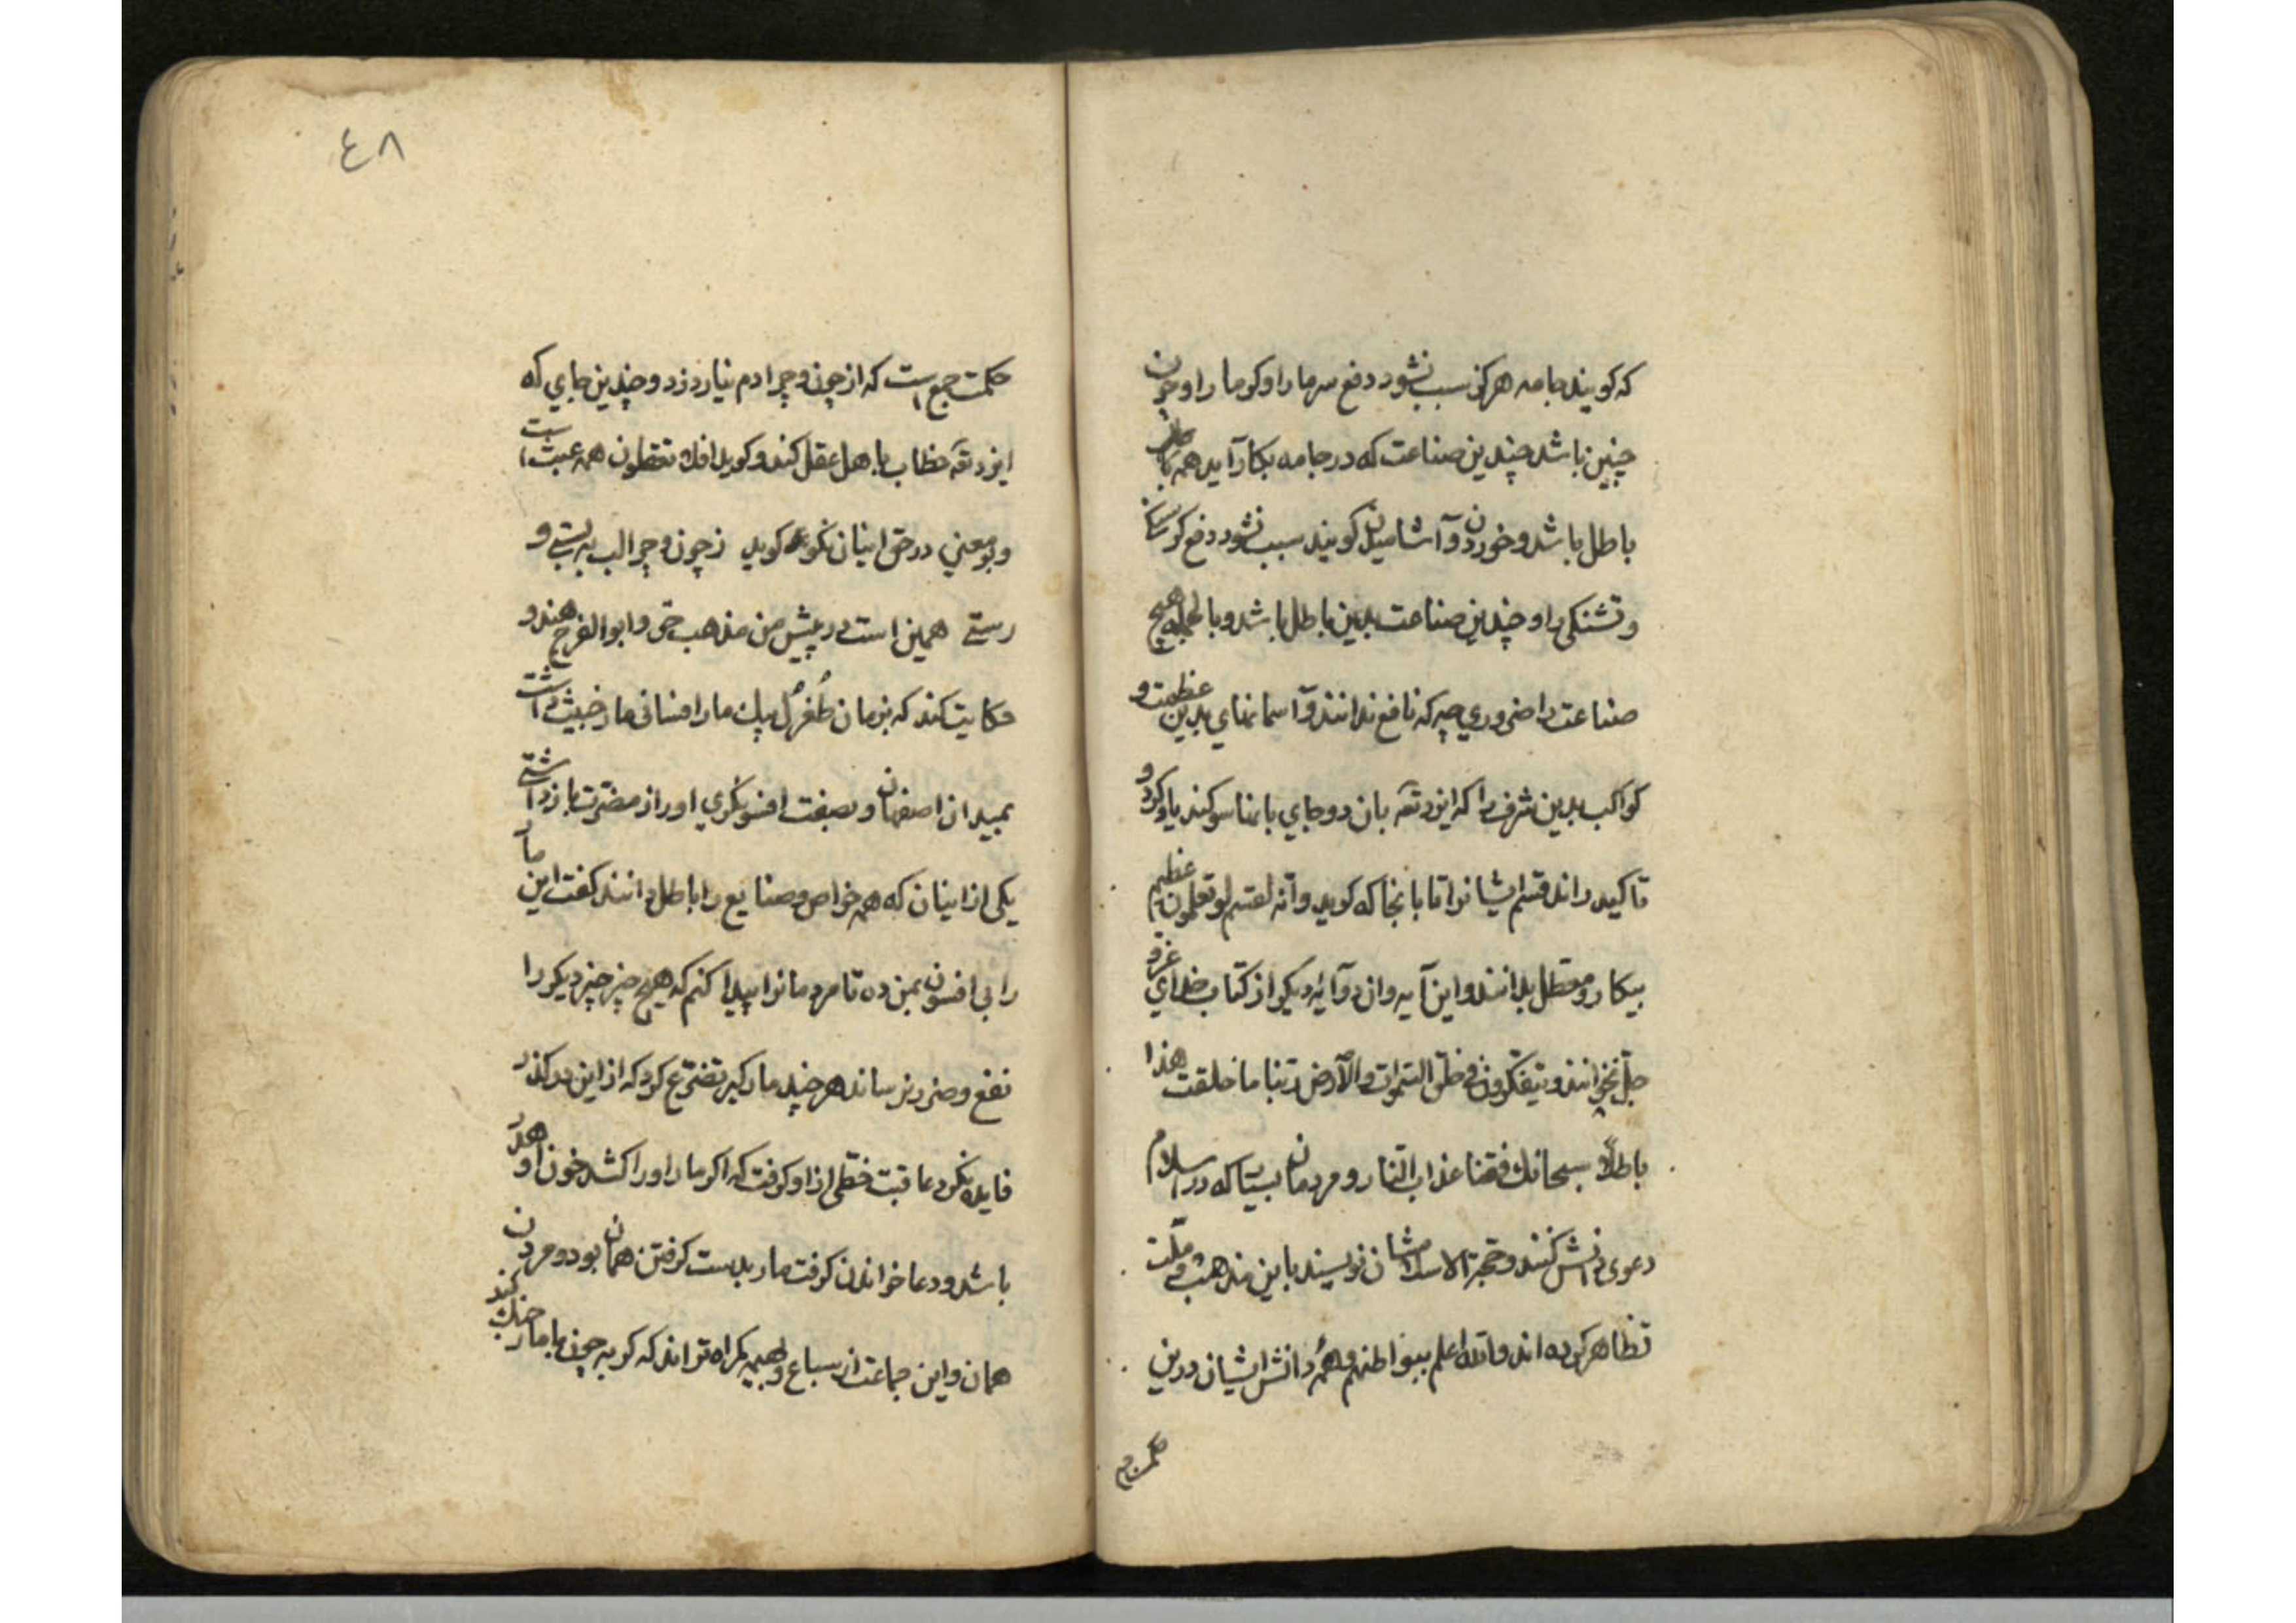 که کویند جامه هرکز سبب نشود دفع سرما را و کرما را و چون
چنین باشد چندین صناعت که در جامه بکار آید همه باطل
باطل باشد و خوردن و آشامیدن کویند سبب نشود دفع کرسنکی
و تشنکی را و چندین صناعت بدین باطل باشد و بالجمله هیچ
صناعت را ضروری چه که نافع ندانند و آسمانهای بدین عظمت و
کواکب بدین شرف را که ایزد تعه بان دو جای بانها سوکند یاد کرد و
تاکید راند قسم ایشانرا تا بانجا که کوید وانه لقسم لو تعلمون عظیم
بیکار و معطل بدانند و این آیه و ان دو آیهٔ دیکر از کتاب خدای عز و
جل نخوانند و یتفکرون فی خلق السموات والارض ربنا ما خلقت هذا
باطلا سبحانک فقنا عذاب النار و مردمان بسیارند که در اسلام
دعوی دانش کنند و حجة الاسلام شان نویسند باین مذهب و ملت
تظاهر کرده اند والله اعلم ببواطنهم و همهٔ دانش ایشان درین
حکمت
٤٨
حکمت جمع است که از چون و چرا دم نیارد زد و چندین جای که
ایزد تعه خطاب با هل عقل کند و کوید افلا تعقلون همه عبث است
و بو معنی در حق اینان نکو کوید ز چون و چرا لب به بستی و
رستی همین است در پیش من مذهب حق و ابو الفرج هندو
حکایت کند که بزمان طغرل بیک مار افسائی مار خبیث داشت
بمیدان اصفهان و بصفت افسونکری او را از مضرت باز داشتی
یکی از اینان که همه خواص و صنایع را باطل دانند کفت این مار
را بی افسون بمن ده تا مردمانرا پیدا کنم که هیچ چیز چیز دیکر را
نفع و ضرر نرساند هر چند مارکیر تضرع کرد که از این در کذر
فایده نکرد عاقبت خطی از او کرفت که اکر مار او را کشد خون او هدر
باشد و دعا خواندن کرفت مار بدست کرفتن همان بود و مردن
همان و این جماعت از سباع و بهیمه کمراه تر اند که کربه چون با مار جنک کند